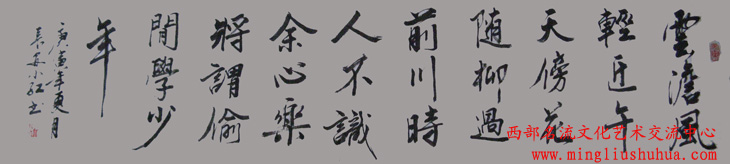 雲澹風
輕近午
天傍花
随柳過
前川時
人不識
余心樂
将謂偷
閒學少
年
庚寅年夏月
長安小紅书
西部名流文化艺术交流中心
www.mingliushuhua.com